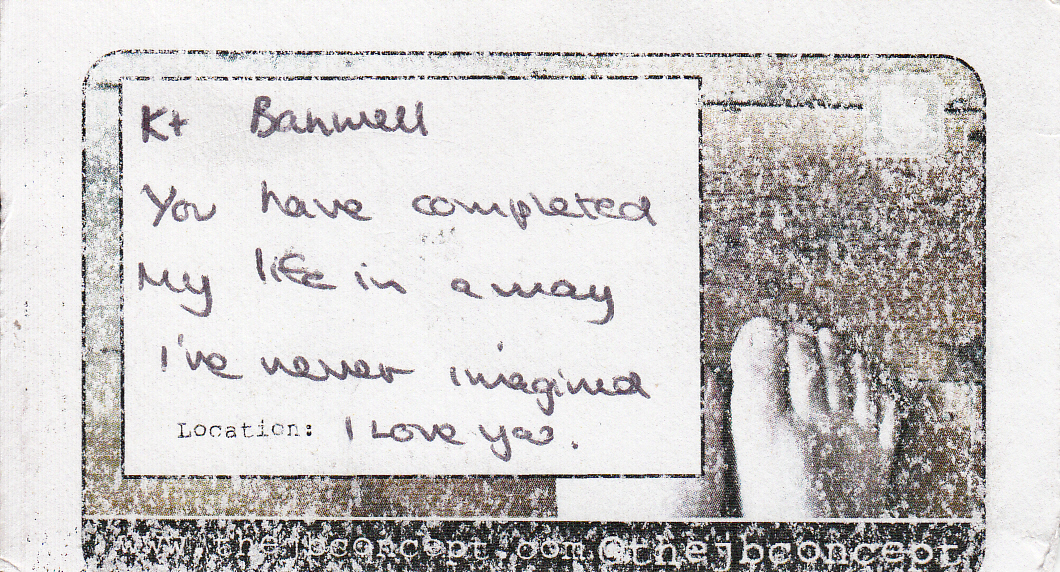 Kt Banwell
You have completed
My life in a way
I've never imagined
Location: I Love ya.
www.thejbconcept.com @thejbconcept